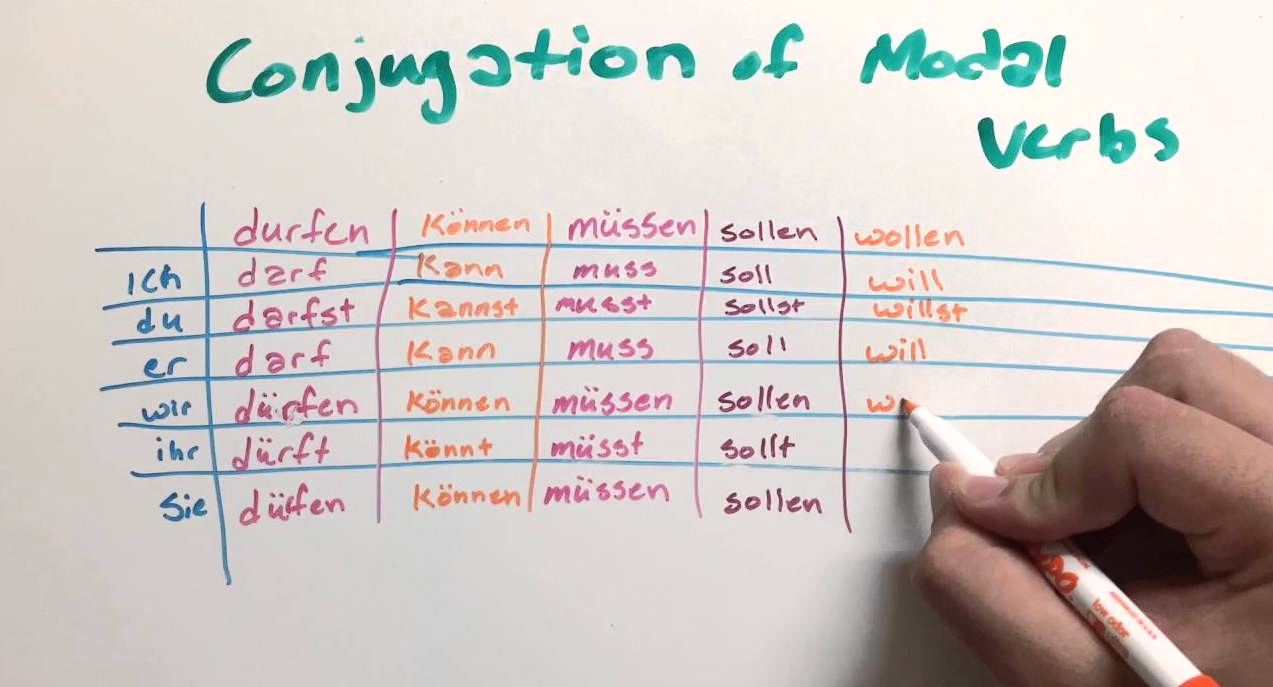 Conjugation of Modal
Verbs
durfen können müssen sollen wollen
ich darf kann muss soll will
du darfst kannst musst sollst willst
er darf kann muss soll will
wir dürfen können müssen sollen w
ihr dürft könnt müsst sollt
Sie dürfen können müssen sollen
low odor